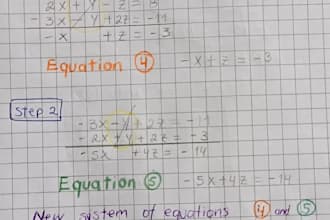 2x + y - z = 8
- 3x - y + 2z = -11
- x + z = -3
Equation ④ - x + z = -3
Step 2
- 3x - y + 2z = -11
- 2x + y + 2z = -3
- 5x + 4z = -14
Equation ⑤ - 5x + 4z = -14
New system of equations ④ and ⑤